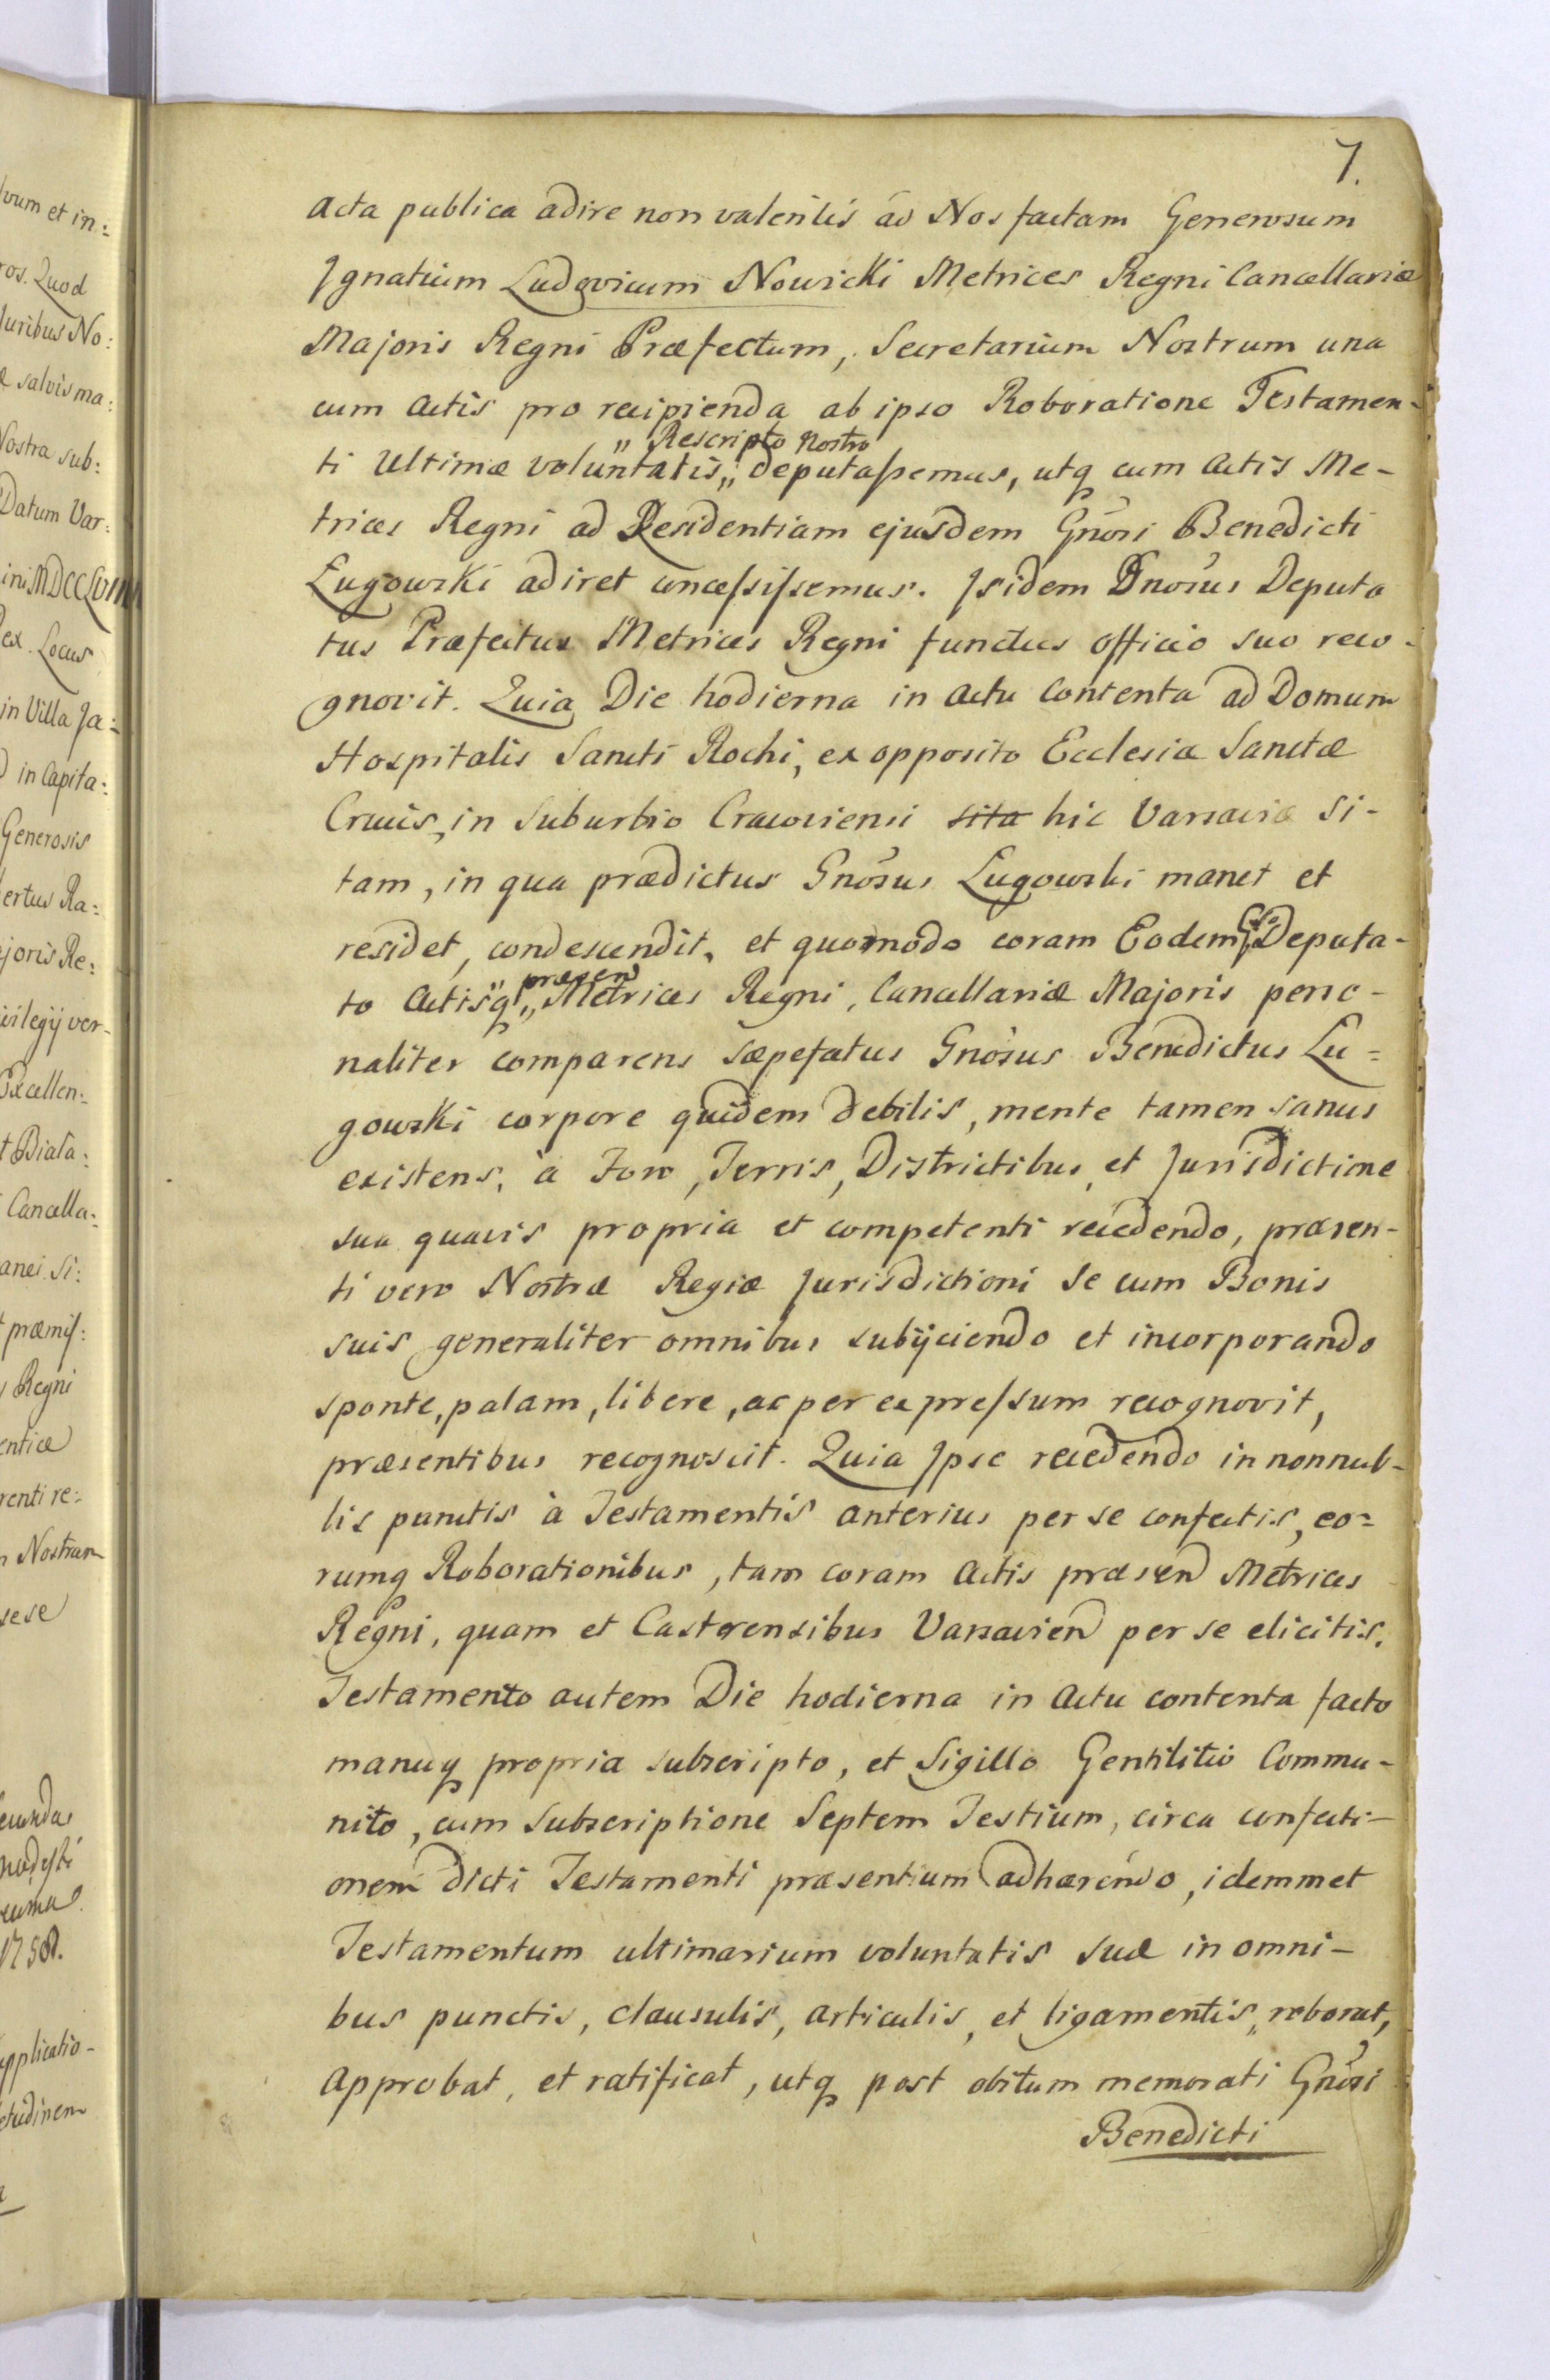 7.
Acta publica adire non valentis ad Nos factam Generosum
Ignatium Ludovicum Nowicki Metrices Regni Cancellariæ
Majoris Regni Præfectum, Secretarium Nostrum una
cum Actis pro recipienda ab ipso Roboratione Testamen-
„ Rescripto Nostro
ti Ultimæ voluntatis „ deputassemus, utq cum Actis Me-
trices Regni ad Residentiam ejusdem Gnosi Benedicti
Ługowski adiret concessissemus. Isidem Gnosus Deputa
tus Præfectus Metrices Regni functus officio suo reco-
gnovit. Quia Die hodierna in Actu contenta ad Domum
Hospitalis Sancti Rochi, ex opposito Ecclesiæ Sanctæ
Crucis, in Suburbio Cracoviensi sita hic Varsaviæ si-
tam, in qua prædictus Gnosus Ługowski manet et
residet, condescendit, et quomodo coram Eodem Gso Deputa-
præsen
to Actisq „ Metrices Regni, Cancellariæ Majoris perso-
naliter comparens sæpefatus Gnosus Benedictus Łu=
gowski corpore quidem debilis, mente tamen sanus
existens, à Foro, Terris, Districtibus, et Jurisdictione
sua quavis propria et competenti recedendo, præsen-
ti vero Nostræ Regiæ Jurisdictioni se cum Bonis
suis generaliter omnibus subijciendo et incorporando
sponte, palam, libere, ac per expressum recognovit,
præsentibus recognoscit. Quia Ipse recedendo in nonnul-
lis punctis à Testamentis anterius per se confectis, eo=
rumq Roborationibus, tam coram Actis præsen Metrices
Regni, quam et Castrensibus Varsavien per se elicitis.
Testamento autem Die hodierna in Actu contenta facto
manuq propria subscripto, et Sigillo Gentilitio Commu-
nito, cum Subscriptione Septem Testium, circa confecti-
onem dicti Testamenti præsentium adhærendo, idemmet
Testamentum ultimarium voluntatis suæ in omni-
bus punctis, clausulis, articulis, et ligamentis, roborat,
Approbat, et ratificat, utq post obitum memorati Gnosi
Benedicti